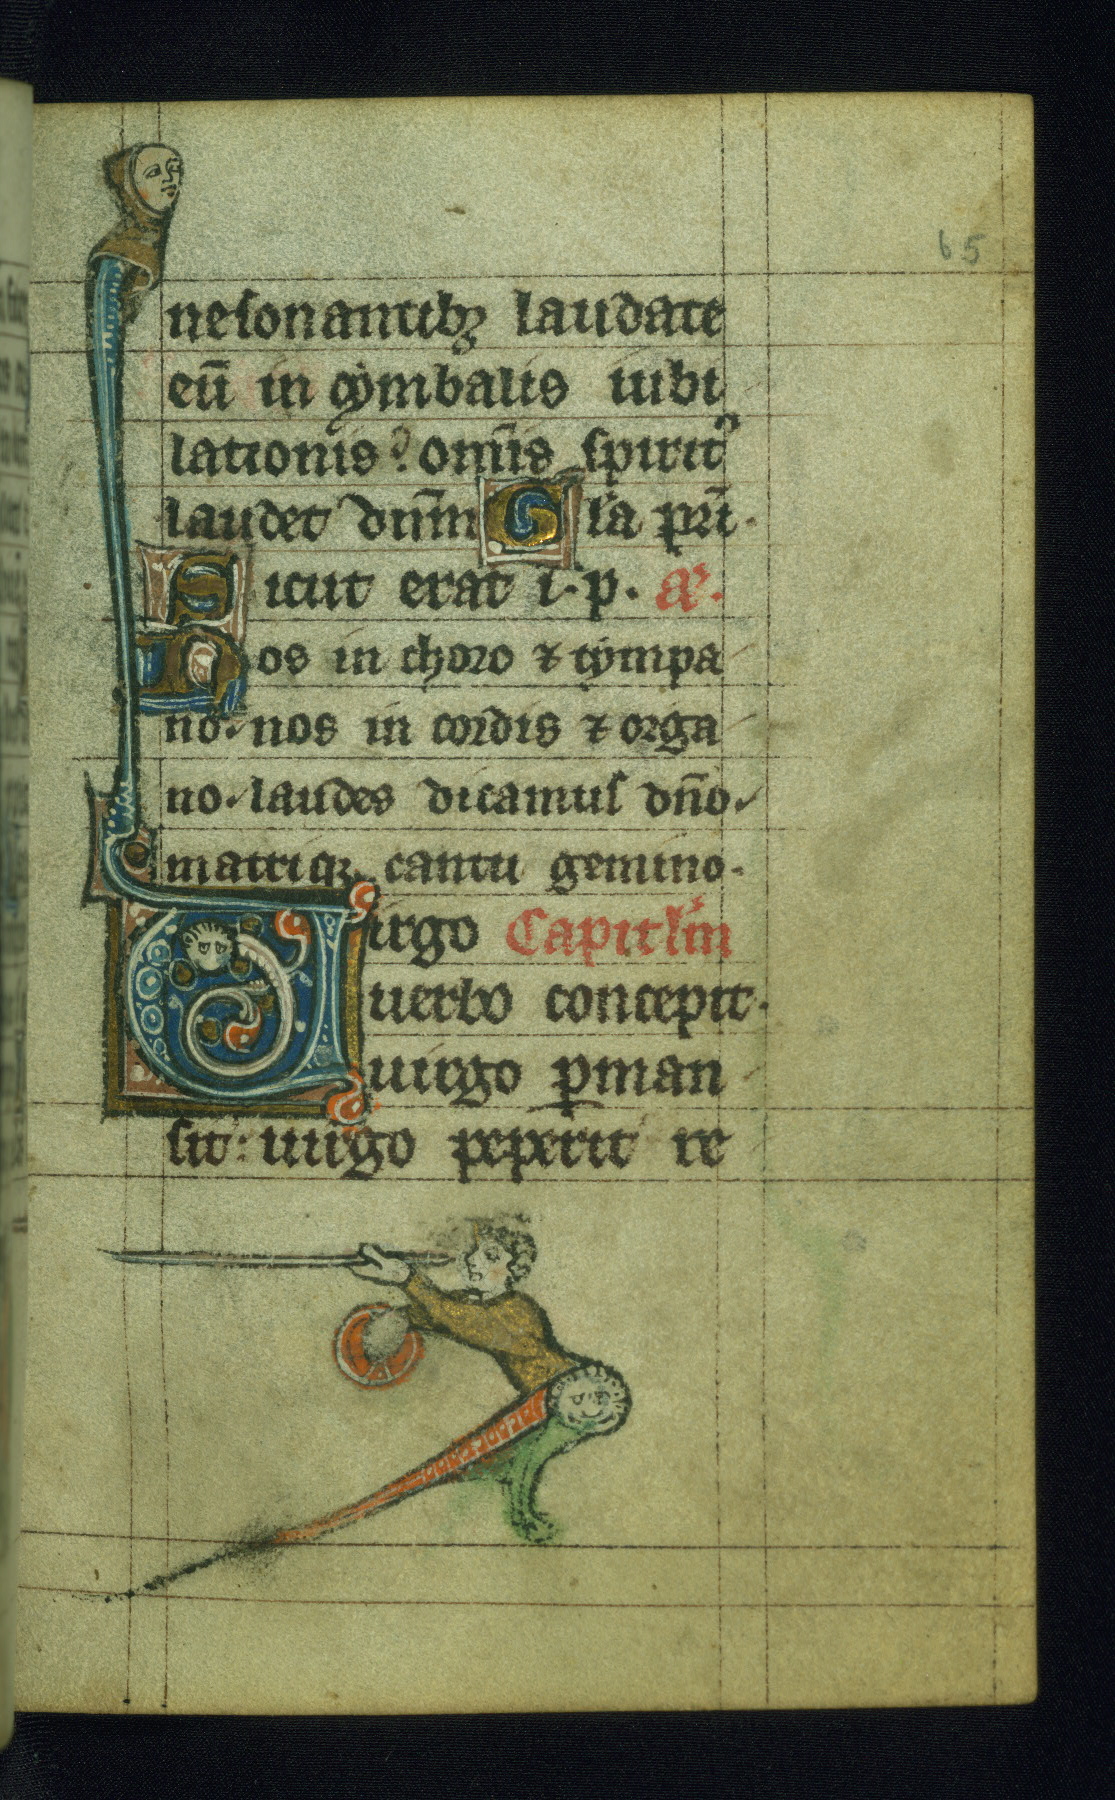 65
nesonantibꝫ laudate
eū in cymbalis iubi
lationis: om̄is spiritꝰ
laudet dn̄m Gl'a pr̄i.
Sicut erat i. p. a͞.
Nos in choro ⁊ tympa
no. nos in cordis ⁊ orga
no. laudes dicamus dn̄o.
matriqꝫ cantu gemino.
Virgo Capitl'm
uerbo concepit.
uirgo ꝑman
sit: uirgo peperit re